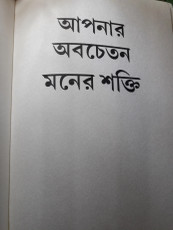 আপনার
অবচেতন
মনের শক্তি